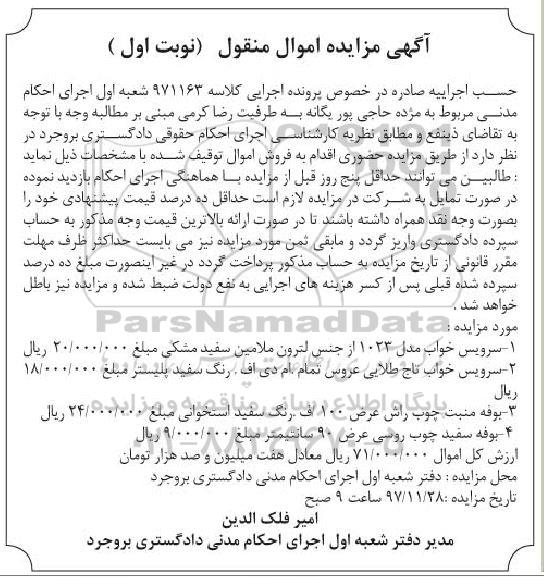 آگهی مزایده اموال منقول (نوبت اول )
حسب اجراییه صادره در خصوص پرونده اجرایی کلاسه ۹۷۱۱۶۳ شعبه اول اجرای احکام
مدنی مربوط به مژده حاجی پور یگانه به طرفیت رضا کرمی مبنی بر مطالبه وجه با توجه
به تقاضای ذینفع و مطابق نظریه کارشناسی اجرای احکام حقوقی دادگستری بروجرد در
نظر دارد از طریق مزایده حضوری اقدام به فروش اموال توقیف شده با مشخصات ذیل نماید
: طالبین می توانند حداقل پنج روز قبل از مزایده با هماهنگی اجرای احکام بازدید نموده
در صورت تمایل به شرکت در مزایده لازم است حداقل ده درصد قیمت پیشنهادی خود را
بصورت وجه نقد همراه داشته باشند تا در صورت ارائه بالاترین قیمت وجه مذکور به حساب
سپرده دادگستری واریز گردد و مابقی ثمن مورد مزایده نیز می بایست حداکثر ظرف مهلت
مقرر قانونی از تاریخ مزایده به حساب مذکور پرداخت گردد در غیر اینصورت مبلغ ده درصد
سپرده شده قبلی پس از کسر هزینه های اجرایی به نفع دولت ضبط شده و مزایده نیز باطل
خواهد شد .
ParsNamadData
مورد مزایده :
۱-سرویس خواب مدل ۱۰۲۳ از جنس لترون ملامین سفید مشکی مبلغ ۲۰/۰۰۰/۰۰۰ ریال
۲-سرویس خواب تاج طلایی عروس تمام ام دی اف . رنگ سفید پلیستر مبلغ ۱۸/۰۰۰/۰۰۰
ریال
پایگاه اطلاع رسانی مناقصه و مزایده
۳-بوفه منبت چوب راش عرض ۱۰۰ ف .رنگ سفید استخوانی مبلغ ۲۴/۰۰۰/۰۰۰ ریال
۴-بوفه سفید چوب روسی عرض ۹۰ سانتیمتر مبلغ ۹/۰۰۰/۰۰۰ ریال
ارزش کل اموال ۷۱/۰۰۰/۰۰۰ ریال معادل هفت میلیون و صد هزار تومان
محل مزایده : دفتر شعبه اول اجرای احکام مدنی دادگستری بروجرد
تاریخ مزایده :۹۷/۱۱/۲۸ ساعت ۹ صبح
امیر فلک الدین
مدیر دفتر شعبه اول اجرای احکام مدنی دادگستری بروجرد